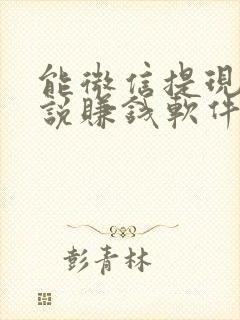 能微信提現
說賺錢軟件
彭青林